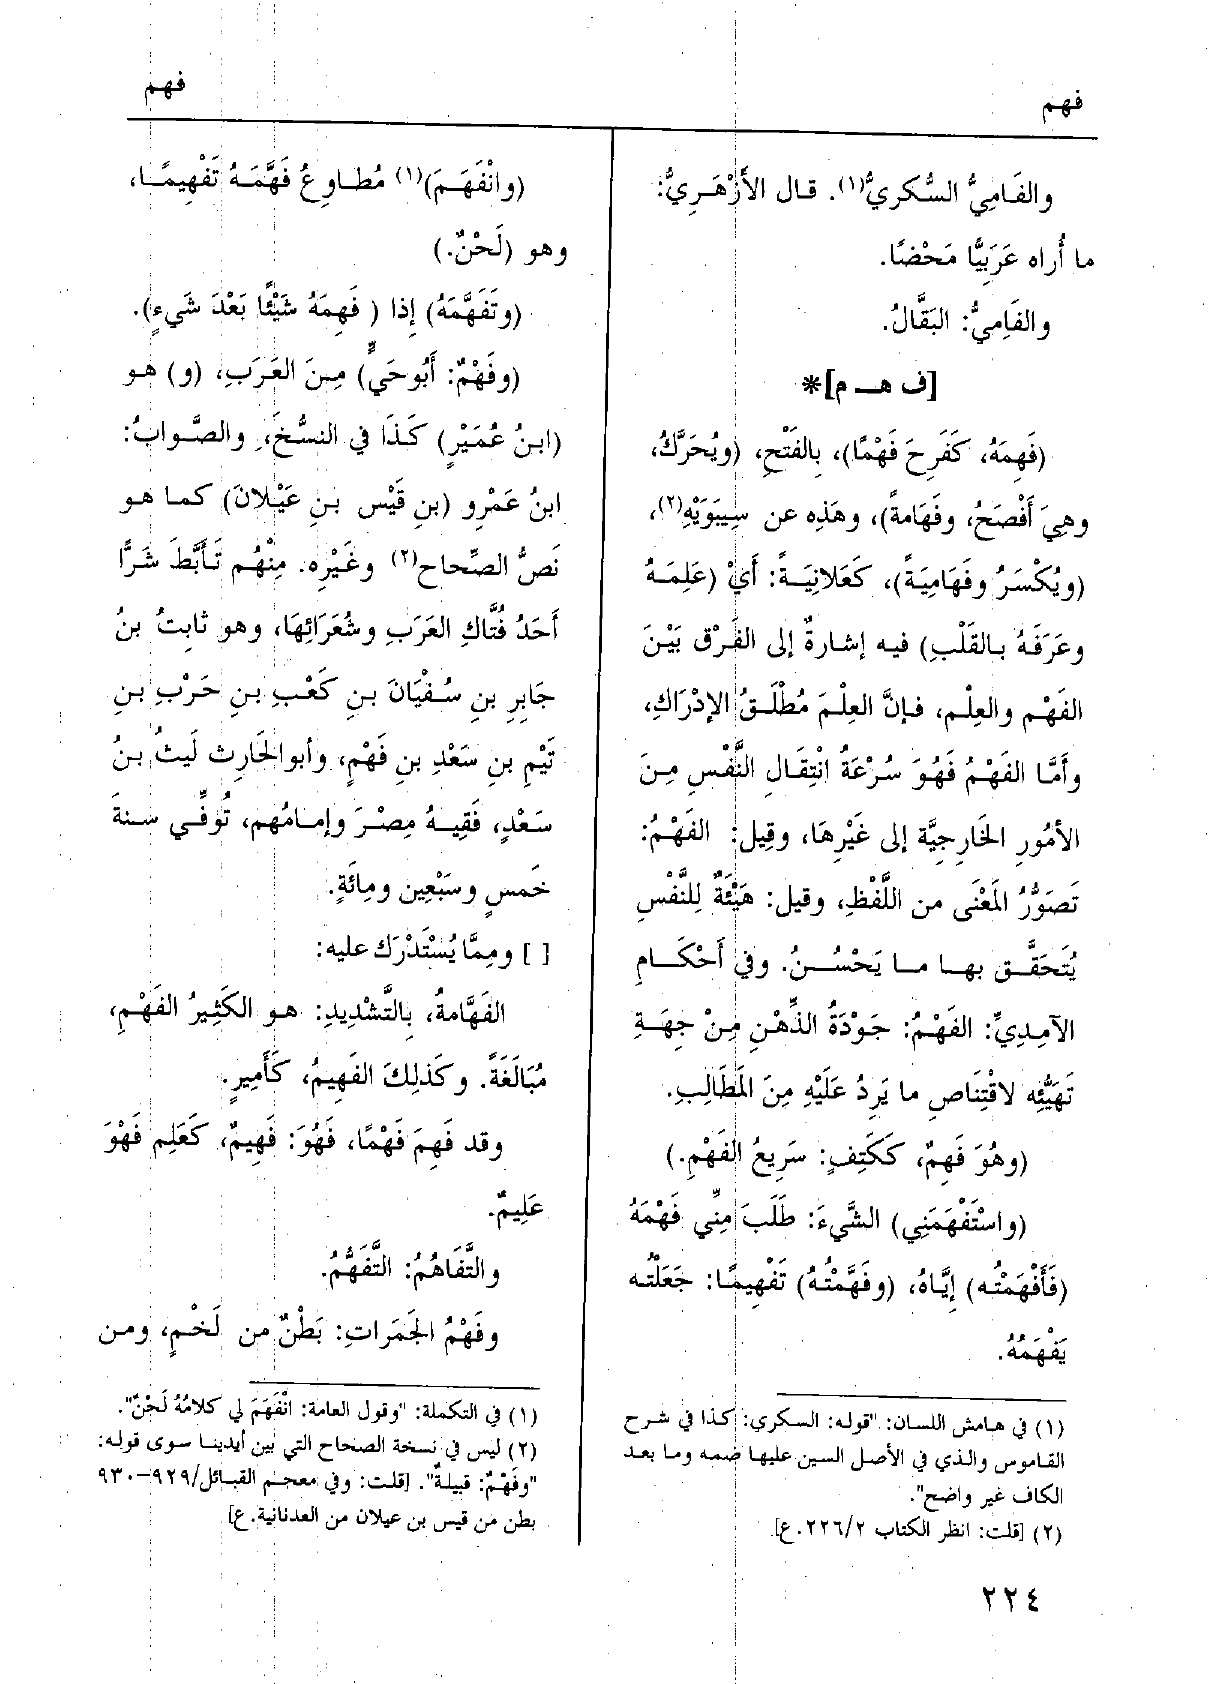 فهم
فهم
والفَامِيُّ السُّكريُّ(١). قال الأَزْهَرِيُّ:
ما أُراه عَرَبِيًّا مَحْضًا.
والفَامِيُّ: البَقَّالُ.
[ف هـ م]*
(فَهِمَهُ، كَفَرِحَ فَهْمًا)، بِالفَتْحِ، (ويُحَرَّكُ،
وهِيَ أَفْصَحُ، وفَهَامةً)، وهَذِه عن سِيبَوَيْهِ(٢)،
(ويُكْسَرُ وفَهَامِيَةً)، كَعَلانِيَةً: أَيْ (عَلِمَهُ
وعَرَفَهُ بالقَلْبِ) فيه إشارةٌ إلى الفَرْق بَيْنَ
الفَهْم والعِلْم، فإنَّ العِلْمَ مُطْلَقُ الإدْرَاكِ،
وأَمَّا الفَهْمُ فَهُوَ سُرْعَةُ انْتِقَالِ النَّفْسِ مِنَ
الأمُورِ الخَارِجِيَّة إلى غَيْرِهَا، وقِيل: الفَهْمُ:
تَصَوُّرُ المَعْنَى من اللَّفْظِ، وقيل: هَيْئَةٌ لِلنَّفْسِ
يُتَحَقَّق بها ما يَحْسُنُ. وفي أَحْكَامِ
الآمِدِيِّ: الفَهْمُ: جَوْدَةُ الذِّهْنِ مِنْ جِهَةِ
تَهَيُّئِه لاقْتِنَاصِ ما يَرِدُ عَلَيْهِ مِنَ المَطَالِبِ.
(وهُوَ فَهِمٌ، كَكَتِفٍ: سَرِيعُ الفَهْمِ.)
(واسْتَفْهَمَنِي) الشَّيءَ: طَلَبَ مِنِّي فَهْمَهُ
(فَأَفْهَمْتُه) إيَّاهُ، (وفَهَّمْتُهُ) تَفْهِيمًا: جَعَلْتُه
يَفْهَمُهُ.
(١) في هامش اللسان: "قوله: السكري: كذا في شرح
القاموس والذي في الأصل السين عليها ضمه وما بعد
الكاف غير واضح".
(٢) [قلت: انظر الكتاب ٢٢٦/٢.ع].
(وانْفَهَمَ)(١) مُطاوِعُ فَهَّمَهُ تَفْهِيمًا،
وهو (لَحْنٌ.)
(وتَفَهَّمَهُ) إذا ( فَهِمَهُ شَيْئًا بَعْدَ شَيءٍ).
(وفَهْمٌ: أَبُوحَيٍّ) مِنَ العَرَبِ، (و) هو
(ابنُ عُمَيْرٍ) كَذَا في النسُّخَ، والصَّوابُ:
ابنُ عَمْرٍو (بنِ قَيْس بنِ عَيْلانَ) كما هو
نَصُّ الصِّحاح(٢) وغَيْرِه. مِنْهُم تَأَبَّطَ شَرًّا
أحَدُ فُتَّاكِ العَرَبِ وشُعَرَائِهَا، وهو ثابِتُ بنُ
جَابِرِ بنِ سُفْيَانَ بنِ كَعْبِ بنِ حَرْبِ بنِ
تَيْمِ بنِ سَعْدِ بنِ فَهْمٍ، وأبوالحَارِث لَيثُ بنُ
سَعْدٍ، فَقِيهُ مِصْرَ وإمامُهم، تُوفِّي سنةَ
خَمسٍ وسَبْعِين ومِائَةٍ.
[ ] ومِمَّا يُسْتَدْرَك عليه:
الفَهَّامةُ، بِالتَّشْدِيدِ: هو الكَثِيرُ الفَهْمِ،
مُبَالَغَةً. وكَذلِكَ الفَهِيمُ، كَأَمِيرٍ.
وقد فَهِمَ فَهْمًا، فَهُوَ: فَهِيمٌ، كَعَلِم فَهْوَ
عَلِيمٌ.
والتَّفَاهُمُ: التَّفَهُّمُ.
وفَهْمُ الجَمَراتِ: بَطْنٌ من لَخْمٍ، ومن
(١) في التكملة: "وقول العامة: انْفَهَمَ لي كلامُهُ لَحْنٌ".
(٢) ليس في نسخة الصحاح التي بين أيدينا سوى قوله:
"وفَهْمٌ: قبيلةٌ". [قلت: وفي معجم القبائل/٩٢٩-٩٣٠
بطن من قيس بن عيلان من العدنانية.ع]
٢٢٤